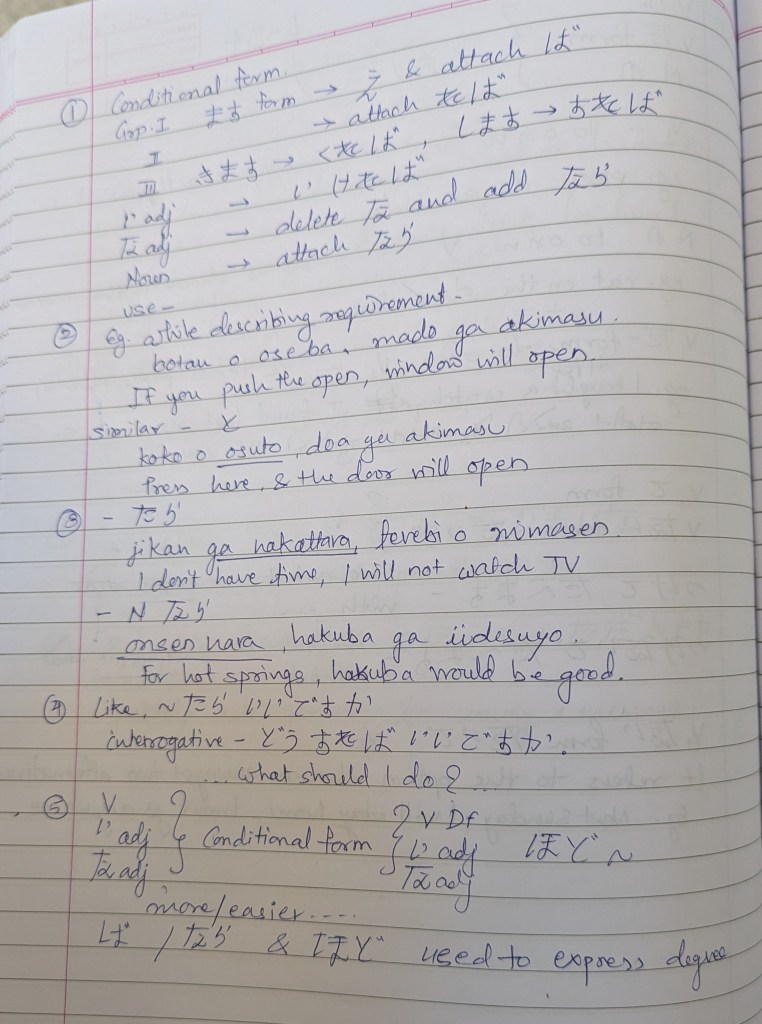 ① Conditional form.
Grp. I ます form → え & attach ば
II → attach れば
III きます → くれば, します → すれば
い adj → い ければ
な adj → delete な and add なら
Noun → attach なら
use -
② Eg. while describing requirement -
botan o oseba, mado ga akimasu.
If you push the open, window will open.
similar - と
koko o osuto, doa ga akimasu
Press here, & the door will open
③ - たら
jikan ga nakattara, terebi o mimasen.
I don't have time, I will not watch TV
- N なら
onsen nara, hakuba ga iidesuyo.
For hot springs, hakuba would be good.
④ Like, ~たら いいですか
interrogative - どう すれば いいですか.
... what should I do?...
⑤ V
い adj } Conditional form { V Df い adj ほど ~
な adj な adj
more/easier.....
ば / なら & ほど used to express degree